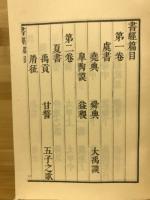 書經篇目
第一卷
虞書
堯典　舜典　大禹謨
皐陶謨　益稷
第二卷
夏書
禹貢　甘誓　五子之歌
胤征
書經篇目